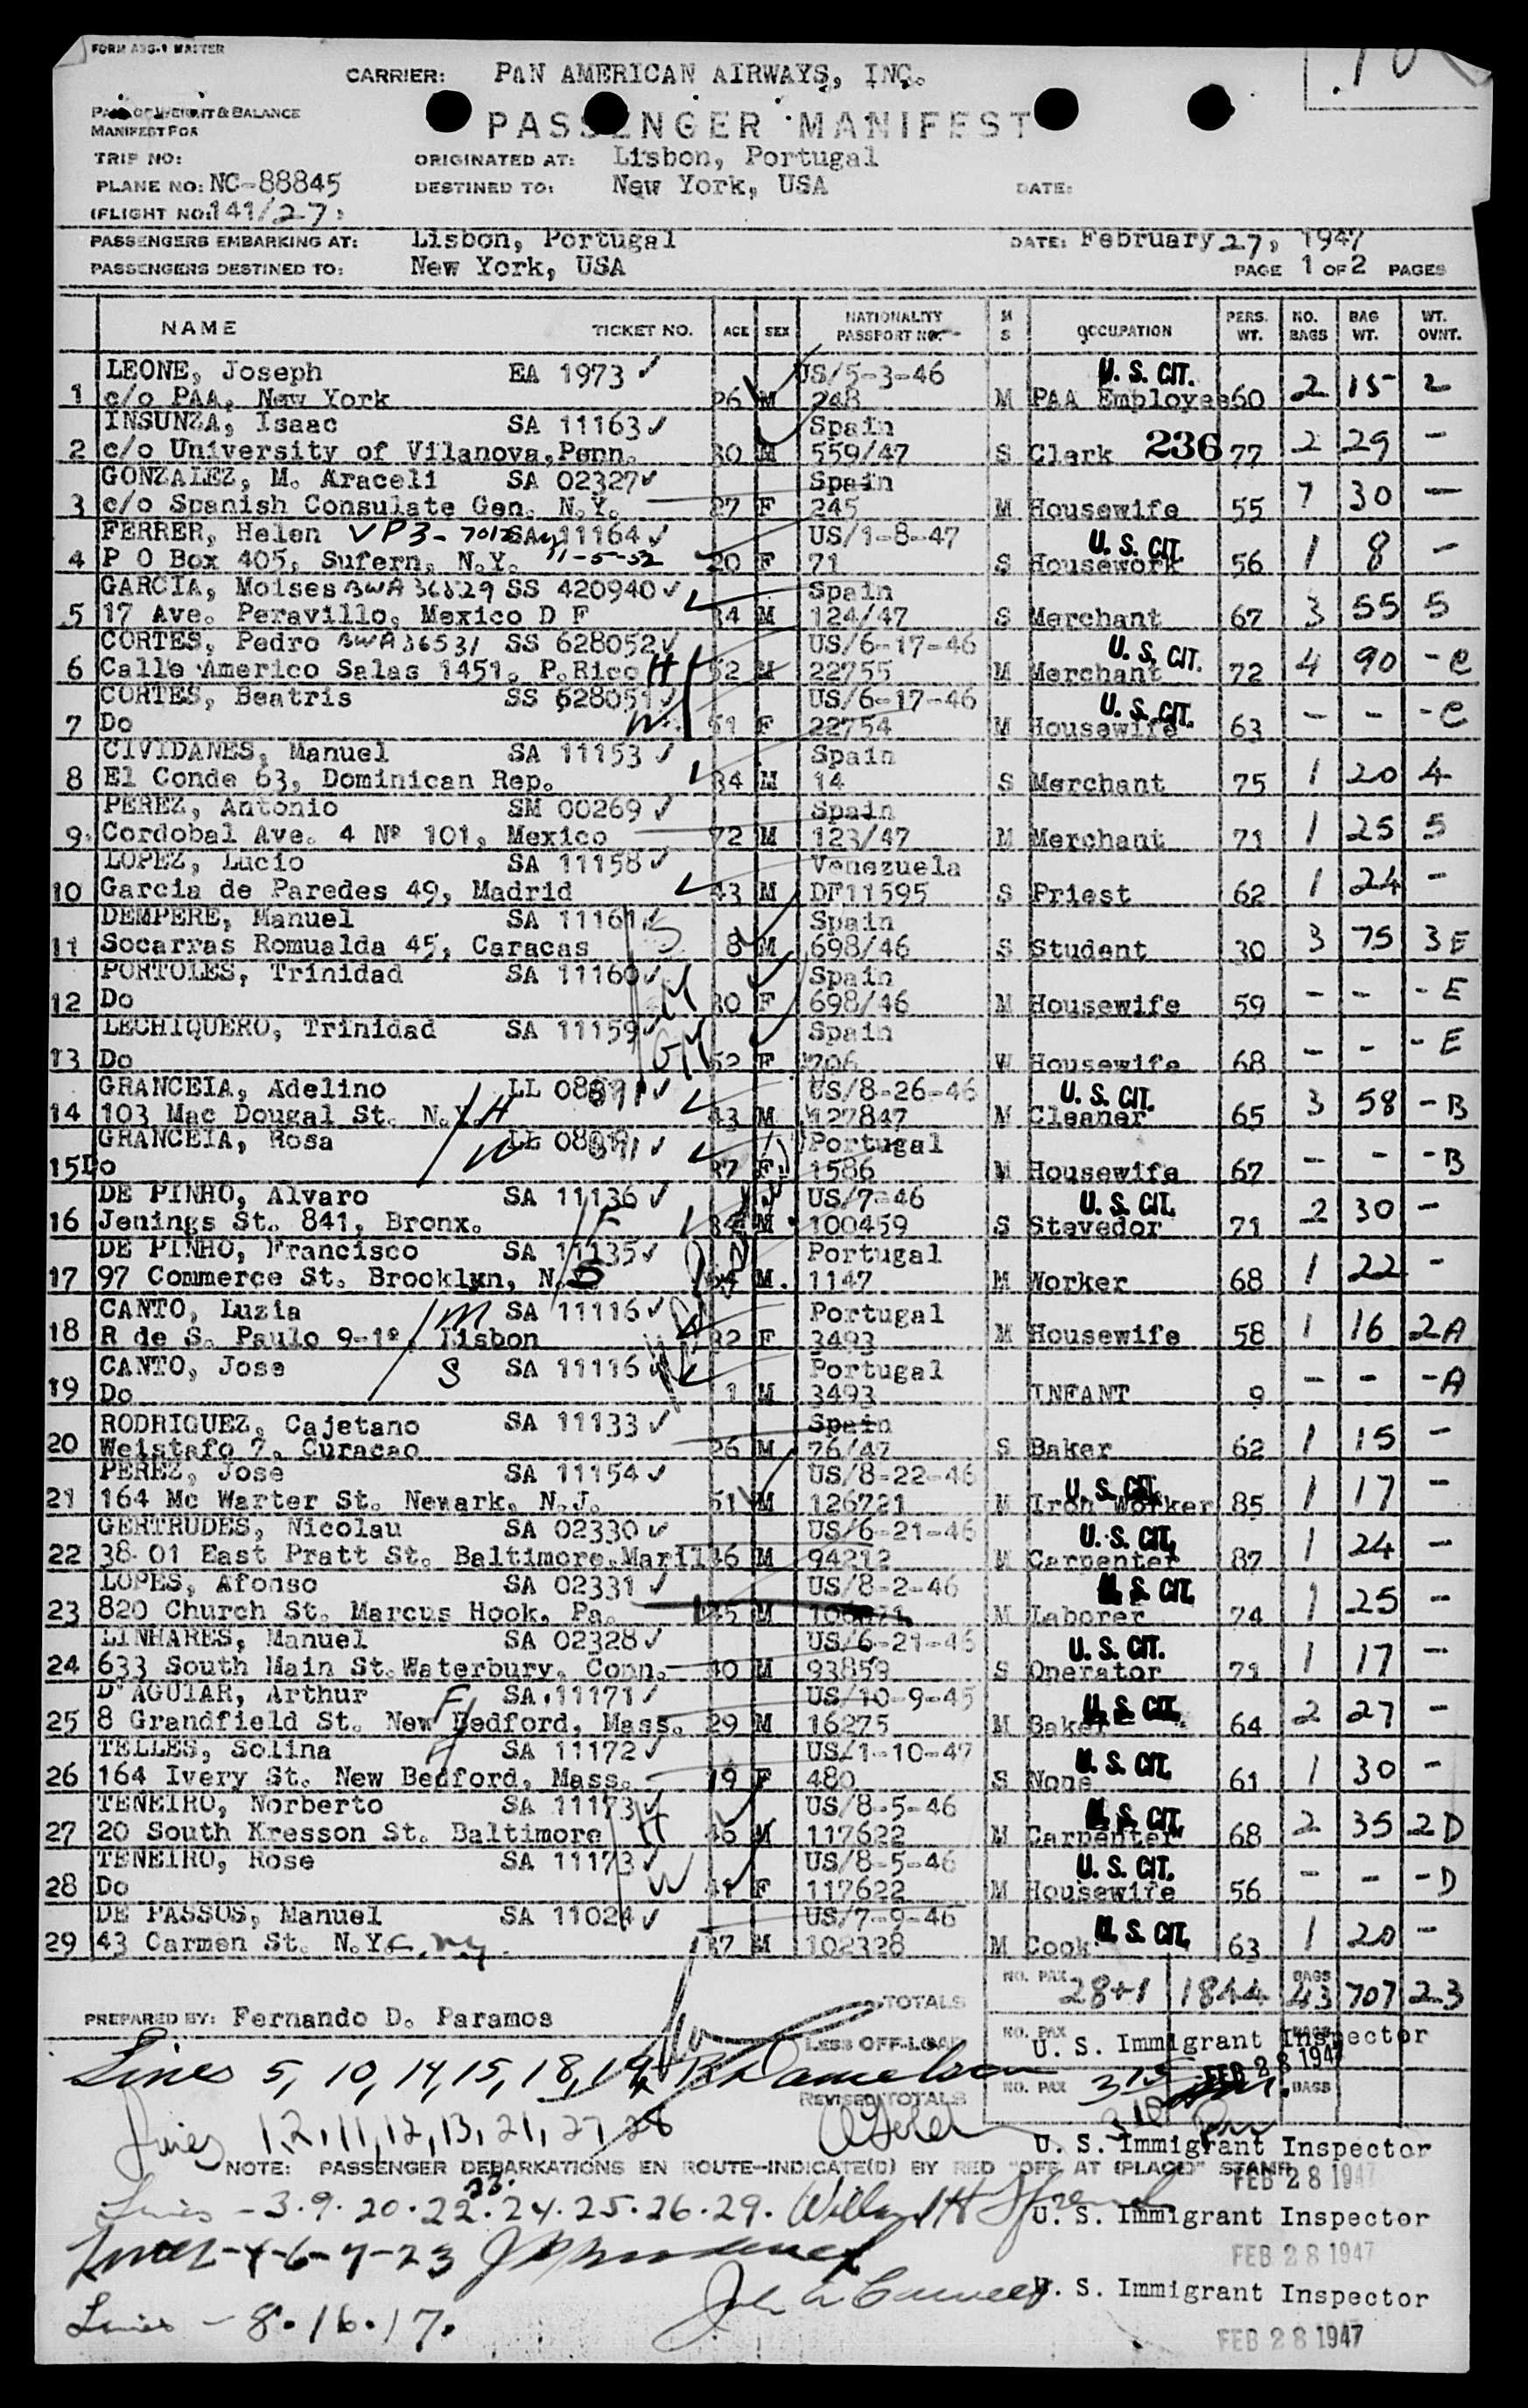 FORM ABS-1 MASTER
CARRIER: PAN AMERICAN AIRWAYS, INC.
MANIFEST FOR
PASSENGER MANIFEST
TRIP NO: ORIGINATED AT: Lisbon, Portugal
PLANE NO: NC-88845 DESTINED TO: New York, USA DATE:
(FLIGHT NO: 141/27)
PASSENGERS EMBARKING AT: Lisbon, Portugal DATE: February 27, 1947
PASSENGERS DESTINED TO: New York, USA PAGE 1 OF 2 PAGES
NAME TICKET NO. AGE SEX NATIONALITY PASSPORT NO. M S OCCUPATION PERS. WT. NO. BAGS BAG WT. WT. OVNT.
LEONE, Joseph EA 1973 ✓ US/5-3-46 U. S. CIT.
1 c/o PAA, New York 26 M 248 M PAA Employee 60 2 15 2
INSUNZA, Isaac SA 11163 ✓ Spain
2 c/o University of Vilanova, Penn. 30 M 559/47 S Clerk 236 77 2 29 -
GONZALEZ, M. Araceli SA 02327 ✓ Spain
3 c/o Spanish Consulate Gen. N.Y. 27 F 245 M Housewife 55 7 30 -
FERRER, Helen VP3- SA 11164 ✓ US/1-8-47 U. S. CIT.
4 P O Box 405, Sufern, N.Y. 11-5-52 20 F 71 S Housework 56 1 8 -
GARCIA, Moises BWA 36529 SS 420940 ✓ Spain
5 17 Ave. Peravillo, Mexico D F 34 M 124/47 S Merchant 67 3 55 5
CORTES, Pedro BWA 36531 SS 628052 ✓ US/6-17-46 U. S. CIT.
6 Calle Americo Salas 1451, P.Rico H 52 M 22755 M Merchant 72 4 90 - C
CORTES, Beatris SS 628051 ✓ US/6-17-46 U. S. CIT.
7 Do W 51 F 22754 M Housewife 63 - - - C
CIVIDANES, Manuel SA 11153 ✓ Spain
8 El Conde 63, Dominican Rep. 34 M 14 S Merchant 75 1 20 4
PEREZ, Antonio SM 00269 ✓ Spain
9 Cordobal Ave. 4 Nº 101, Mexico 72 M 123/47 M Merchant 71 1 25 5
LOPEZ, Lucio SA 11158 ✓ Venezuela
10 Garcia de Paredes 49, Madrid 43 M DF11595 S Priest 62 1 24 -
DEMPERE, Manuel SA 11161 ✓ S Spain
11 Socarras Romualda 45, Caracas 8 M 698/46 S Student 30 3 75 3 E
PORTOLES, Trinidad SA 11160 ✓ M Spain
12 Do 30 F 698/46 M Housewife 59 - - - E
LECHIQUERO, Trinidad SA 11159 ✓ GM Spain
13 Do 52 F 706 W Housewife 68 - - - E
GRANCEIA, Adelino LL ✓ US/8-26-46 U. S. CIT.
14 103 Mac Dougal St. N.Y. H 43 M 127847 M Cleaner 65 3 58 - B
GRANCEIA, Rosa ✓ Portugal
15 Do W 37 F 1586 M Housewife 67 - - - B
DE PINHO, Alvaro SA 11136 ✓ US/7-46 U. S. CIT.
16 Jenings St. 841, Bronx. F 34 M 100459 S Stevedor 71 2 30 -
DE PINHO, Francisco SA 11135 ✓ Portugal
17 97 Commerce St. Brooklyn, N. S 64 M 1147 M Worker 68 1 22 -
CANTO, Luzia M SA 11116 ✓ Portugal
18 R de S. Paulo 9-1º, Lisbon 32 F 3493 M Housewife 58 1 16 2A
CANTO, Jose S SA 11116 Portugal
19 Do 1 M 3493 INFANT 9 - - - A
RODRIQUEZ, Cajetano SA 11133 ✓ Spain
20 Weistafo 7, Curacao 26 M 76/47 S Baker 62 1 15 -
PEREZ, Jose SA 11154 ✓ US/8-22-46 U. S. CIT.
21 164 Mc Warter St. Newark, N.J. 51 M 126721 M Iron Worker 85 1 17 -
GERTRUDES, Nicolau SA 02330 ✓ US/6-21-46 U. S. CIT.
22 38-01 East Pratt St. Baltimore, Maril 46 M 94212 M Carpenter 87 1 24 -
LOPES, Afonso SA 02331 ✓ US/8-2-46 U. S. CIT.
23 820 Church St. Marcus Hook, Pa. 45 M M Laborer 74 1 25 -
LINHARES, Manuel SA 02328 ✓ US/6-21-46 U. S. CIT.
24 633 South Main St. Waterbury, Conn. 40 M 93859 S Operator 71 1 17 -
D'AGUIAR, Arthur SA 11171 US/10-9-45 U. S. CIT.
25 8 Grandfield St. New Bedford, Mass. 29 M 16275 M Baker 64 2 27 -
TELLES, Solina SA 11172 ✓ US/1-10-47 U. S. CIT.
26 164 Ivery St. New Bedford, Mass. 19 F 480 S None 61 1 30 -
TENEIRO, Norberto SA 11173 ✓ US/8-5-46 U. S. CIT.
27 20 South Kresson St. Baltimore H 46 M 117622 M Carpenter 68 2 35 2D
TENEIRO, Rose SA 11173 ✓ US/8-5-46 U. S. CIT.
28 Do W 41 F 117622 M Housewife 56 - - - D
DE PASSOS, Manuel SA 11024 ✓ US/7-9-46 U. S. CIT.
29 43 Carmen St. N.Y. 37 M 102328 M Cook 63 1 20 -
TOTALS NO. PAX 28+1 1844 BAGS 43 707 23
PREPARED BY: Fernando D. Paramos
LESS OFF-LOAD NO. PAX U. S. Immigrant Inspector
FEB 28 1947
Lines 5, 10, 14, 15, 18, 19
REVISED TOTALS NO. PAX BAGS
Lines 1, 2, 11, 12, 13, 21, 27, 28
U. S. Immigrant Inspector
NOTE: PASSENGER DEBARKATIONS EN ROUTE—INDICATE(D) BY RED "OFF AT (PLACE)" STAMP
FEB 28 1947
Lines - 3. 9. 20. 22. 23. 24. 25. 26. 29.
U. S. Immigrant Inspector
4-6-7-23
FEB 28 1947
U. S. Immigrant Inspector
Lines - 8. 16. 17.
FEB 28 1947